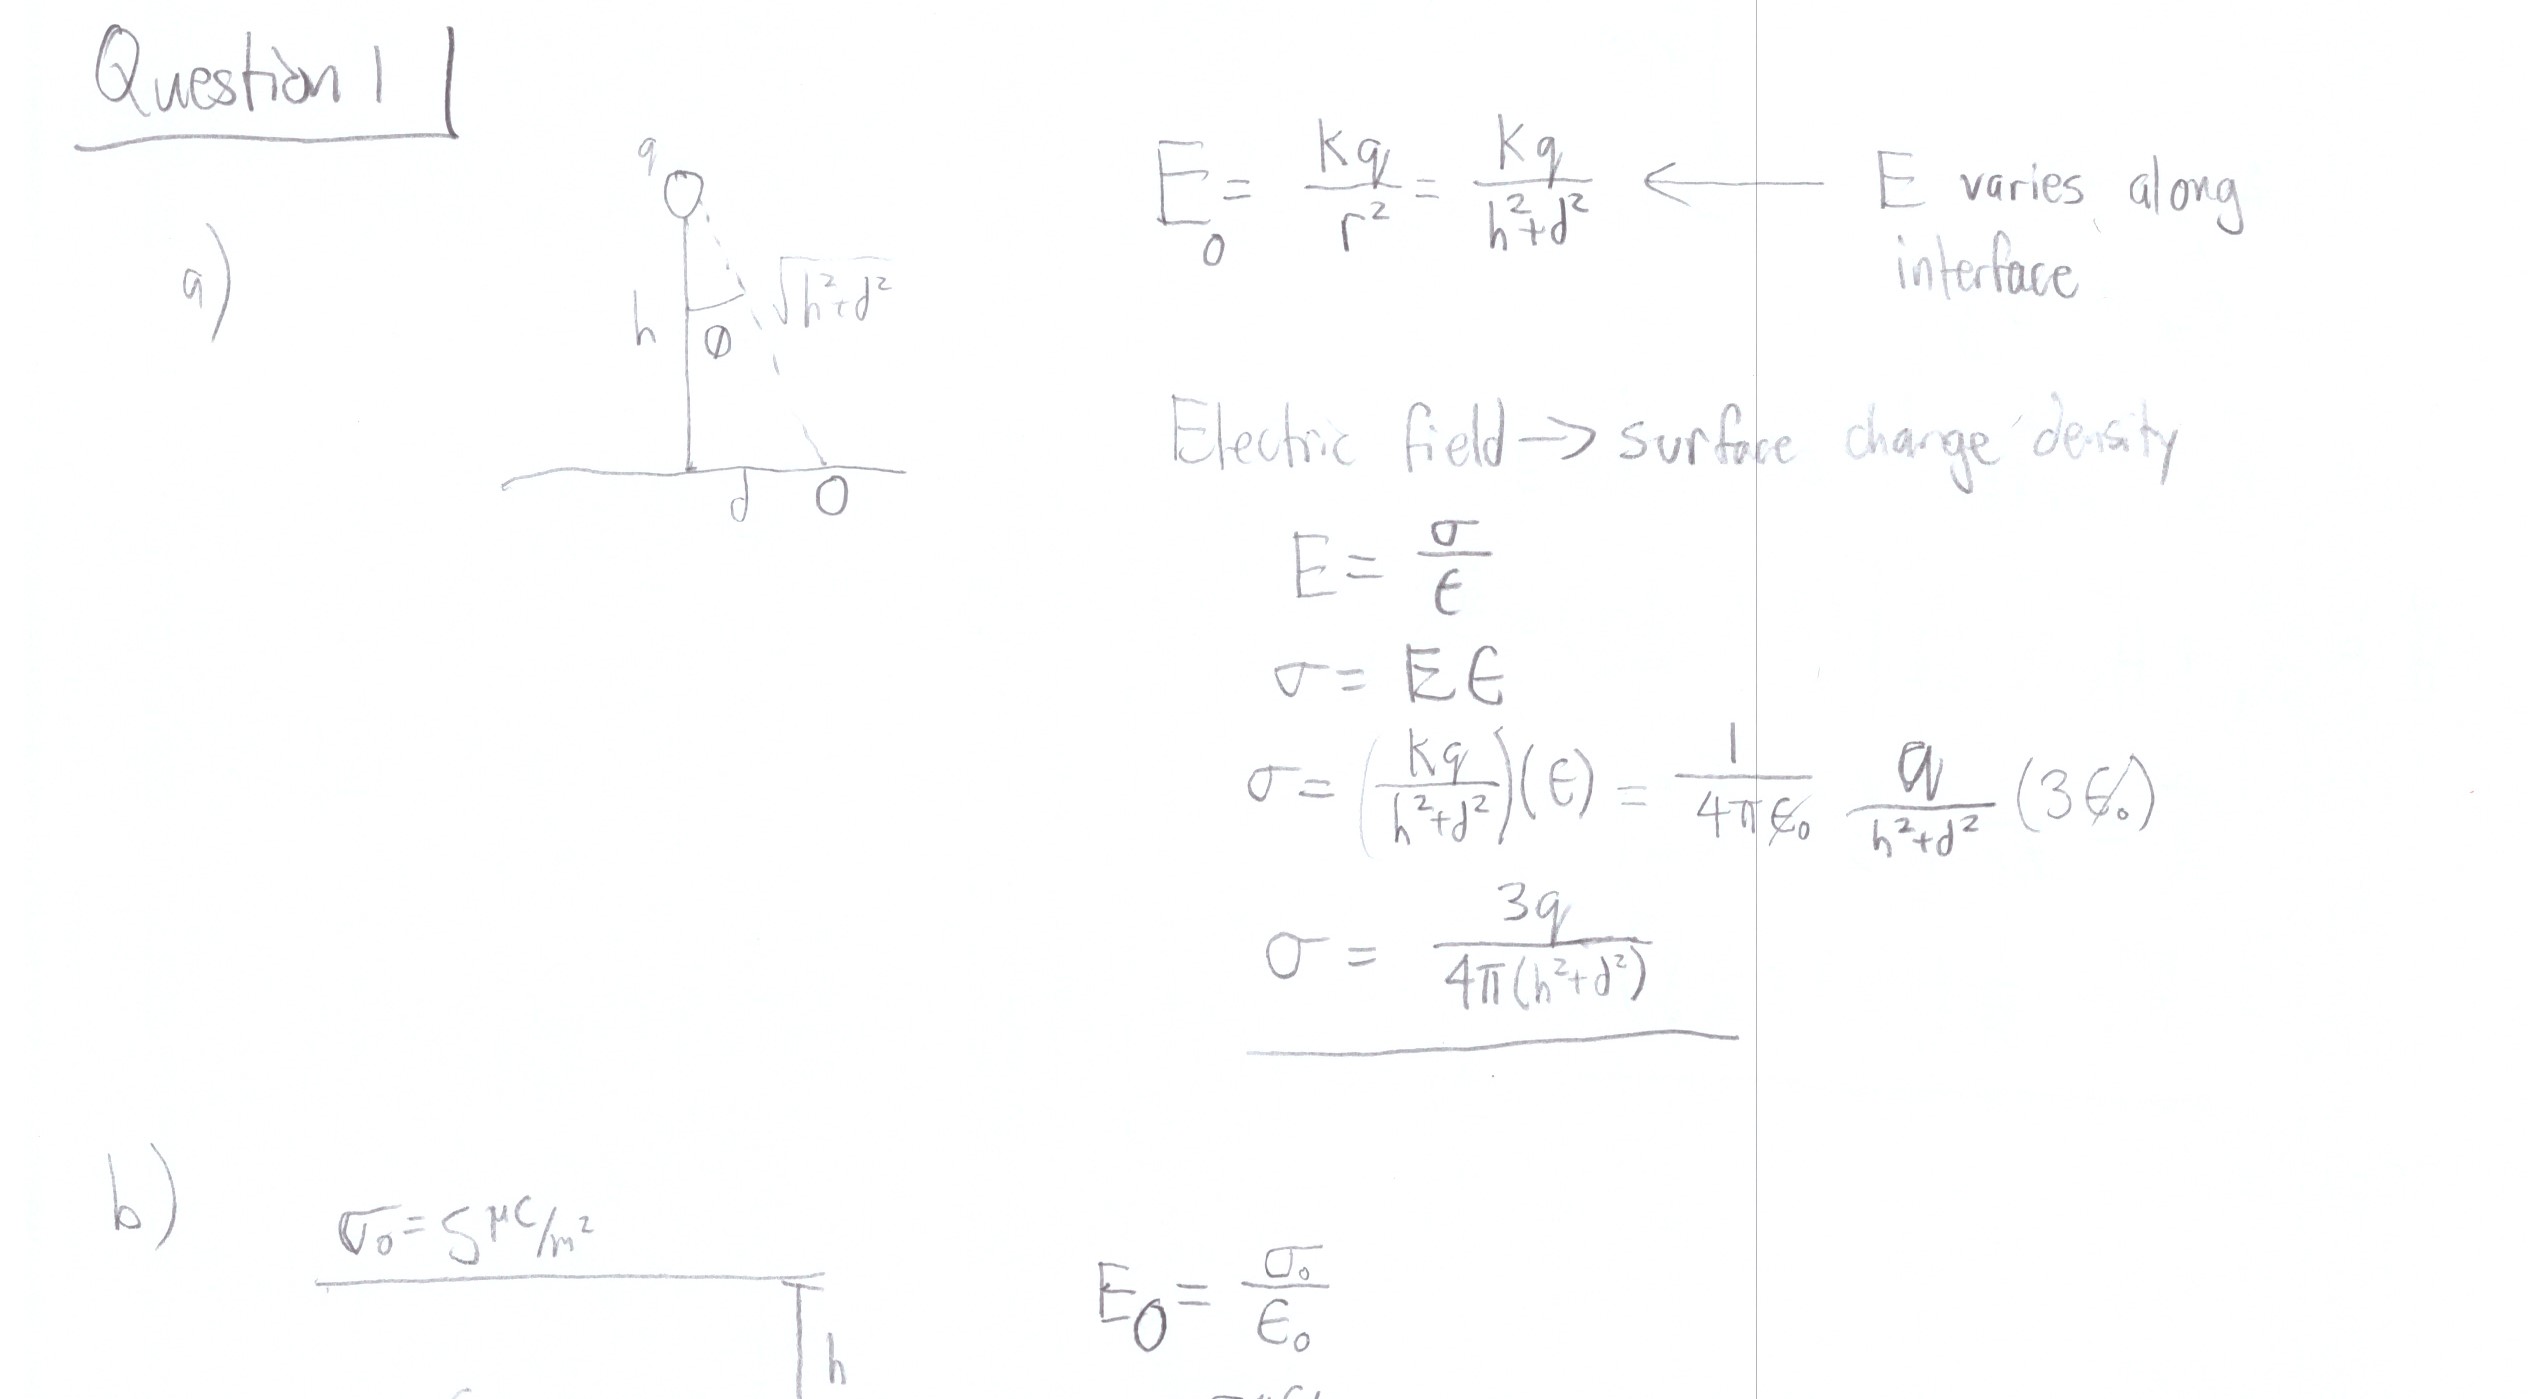 Question 1
a)
q
h
Ø
√h²+d²
d
O
E₀ = Kq/r² = Kq/h²+d² ← E varies along
interface
Electric field → surface change density
E = σ/ϵ
σ = Eϵ
σ = (Kq/h²+d²)(ϵ) = 1/4πϵ₀ q/h²+d² (3ϵ₀)
σ = 3q/4π(h²+d²)
b)
σ₀ = 5 μC/m²
h
E₀ = σ₀/ϵ₀